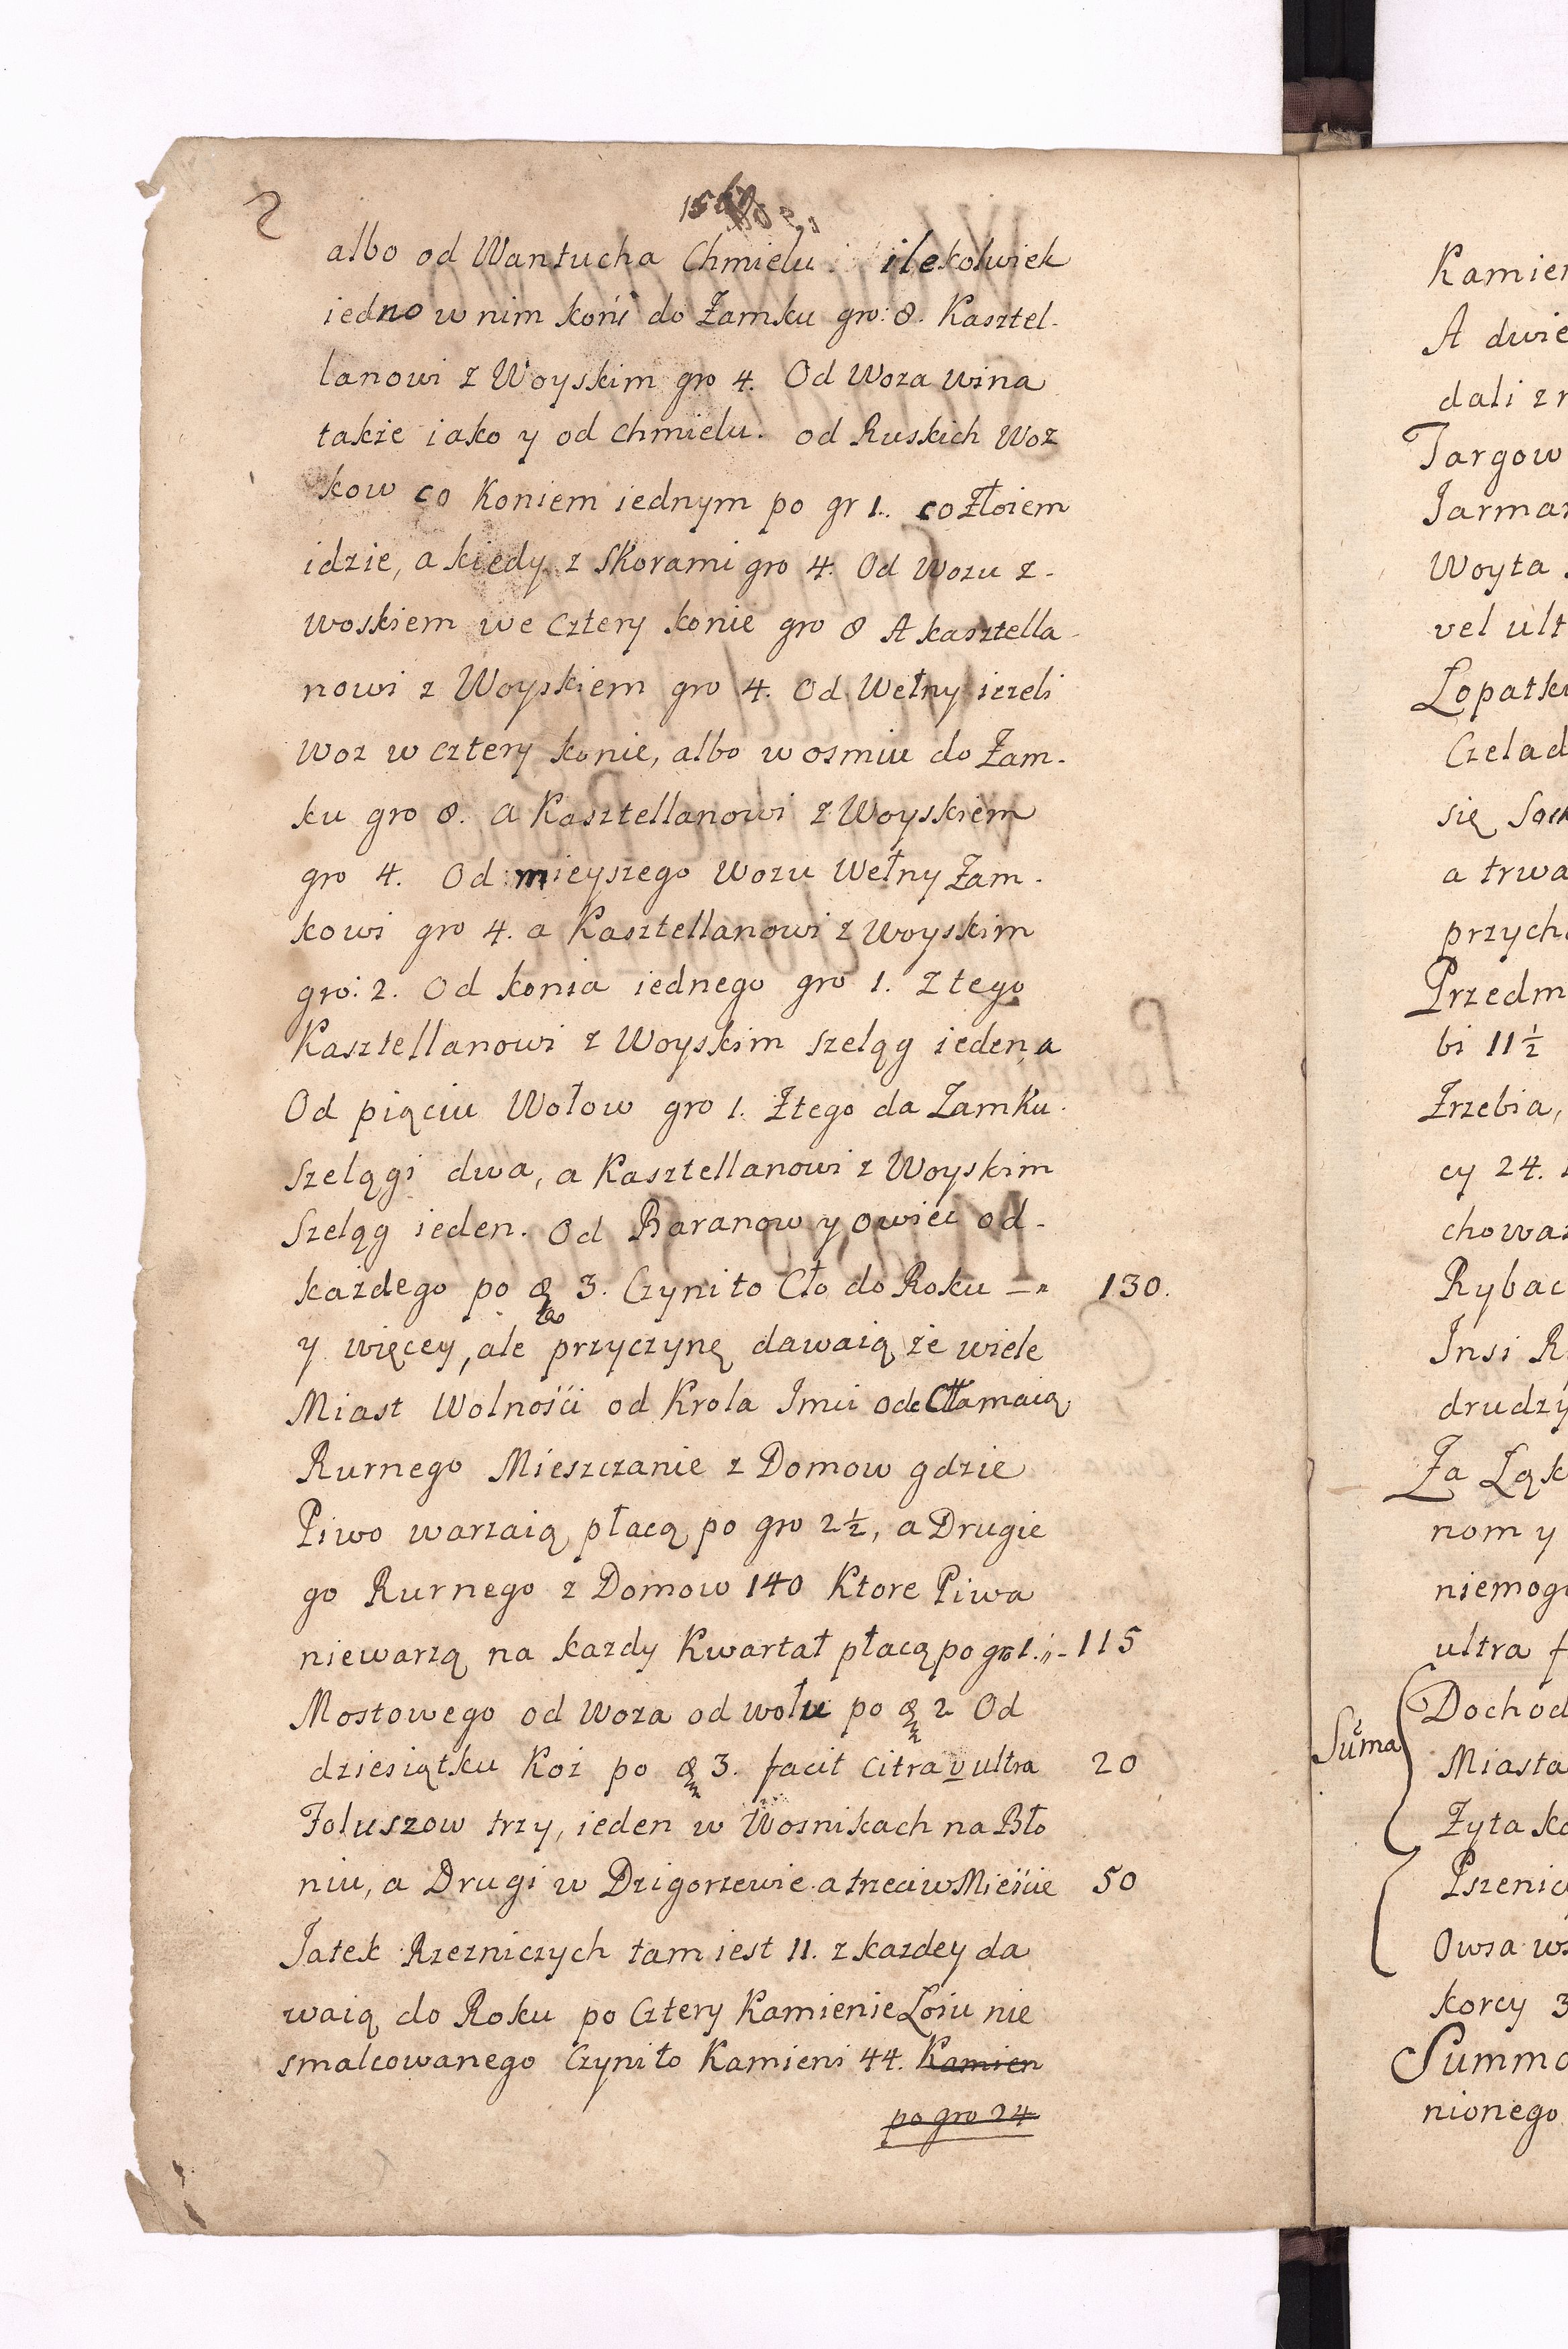 2
albo od Wantucha Chmielu ilekolwiek
iedno w nim końi do Zamku gro: 8. Kasztel-
lanowi z Woyskim gro 4. Od Woza Wina
także iako y od Chmielu. od Ruskich Woz
kow co Koniem iednym po gr 1. co Złoiem
idzie, a kiedy z Skorami gro 4. Od Wozu z-
woskiem we cztery konie gro 8 A kasztella-
nowi z Woyskiem gro 4. Od Wełny ieżeli
Woz w cztery konie, albo w osmiu do Zam-
ku gro 8. a Kasztellanowi z Woyskiem
gro 4. Od mieyszego Wozu Wełny Zam-
kowi gro 4. a Kasztellanowi z Woyskim
gro: 2. Od konia iednego gro 1. Z tego
Kasztellanowi z Woyskim szeląg ieden a
Od piąciu Wołow gro 1. Ztego da Zamku
Szelągi dwa, a Kasztellanowi z Woyskim
Szeląg ieden. Od Baranow y owiec od-
każdego po 3. Czyni to Cło do Roku 130.
y więcey, ale przyczynę dawaią że wiele
Miast Wolnośći od Krola Imći od Cła maią
Rurnego Mieszczanie z Domow gdzie
Piwo warzaią płacą po gro 2½, a Drugie
go Rurnego z Domow 140 Ktore Piwa
niewarzą na każdy Kwartał płacą po gro 1. 115
Mostowego od Woza od wołu po 2 Od
dziesiątku Koz po 3. facit citra v ultra 20
Foluszow trzy, ieden w Woznikach na Bło
niu, a Drugi w Dzigorzewie a trzeci w Mieśćie 50
Jatek Rzezniczych tam iest 11. z kazdey da
waią do Roku po Cztery Kamienie Łoiu nie
smalcowanego Czyni to Kamieni 44. Kamien
po gro 24
Kamien
A dwie
dali z
Targow
Jarmar
Woyta
vel ult
Łopatk
Czelad
się
a trwa
przych
Przedm
bi 11½
Zrzebia,
cy 24.
chowa
Rybac
Insi R
drudzy
Za Łąk
nom y
niemog
ultra f
Suma
Dochod
Miasta
Zyta ko
Pszenic
Owsa ws
korcy 3
Summa
nionego